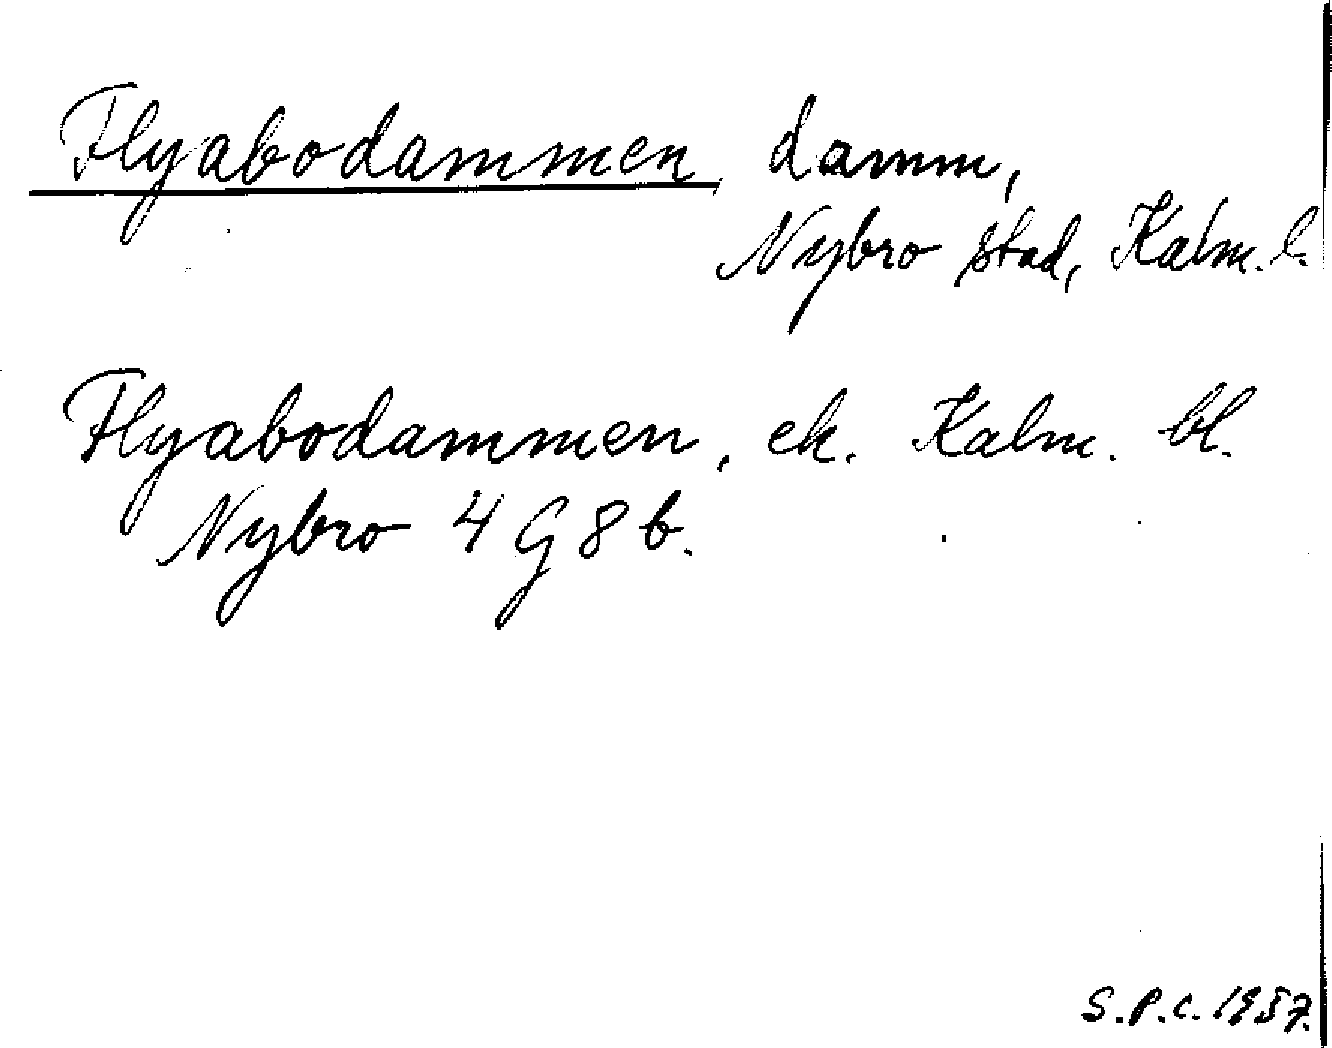 Flyabodammen, damm,
Nybro stad, Kalm. l.
Flyabodammen, ek. Kalm. bl.
Nybro 4 G 8 b.
S.P.C. 1957.